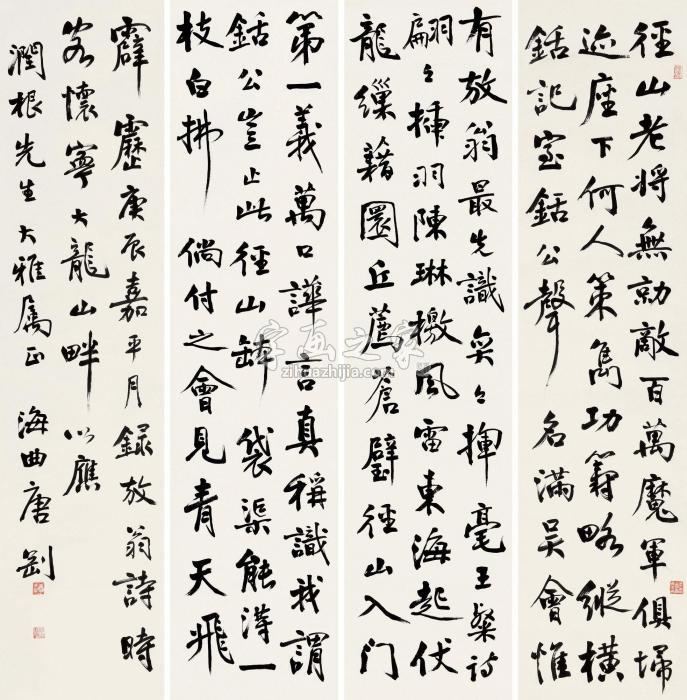 徑山老將無勍敵百萬魔軍俱埽
迹座下何人策雋功籌略縱橫
銛記室銛公聲名滿吳會惟
有放翁最先識奕〻揮毫王粲詩
翩〻插羽陳琳檄風雷東海起伏
龍繅藉圜丘薦蒼璧徑山入门
第一義萬口譁言真稱識我謂
銛公豈止此徑山缽袋渠能得一
枝白拂倘付之會見青天飛
霹靂庚辰嘉平月録放翁詩時
客懷寧大龍山畔以應
潤根先生大雅属正 海曲唐剛
字画之家
zihuazhijia.com